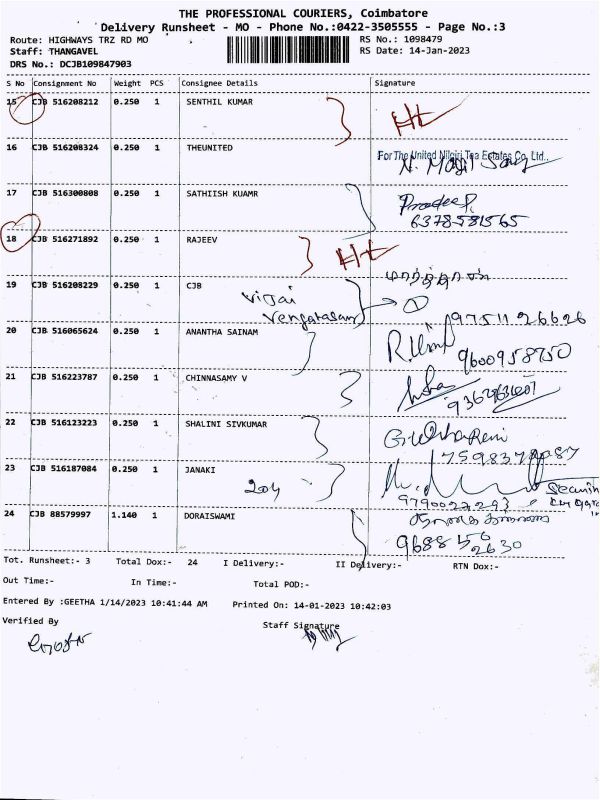 THE PROFESSIONAL COURIERS, Coimbatore
Delivery Runsheet - MO - Phone No.:0422-3505555 - Page No.:3
Route: HIGHWAYS TRZ RD MO
RS No.: 1098479
Staff: THANGAVEL
RS Date: 14-Jan-2023
DRS No.: DCJB109847903
S No Consignment No Weight PCS Consignee Details Signature
15 CJB 516208212 0.250 1 SENTHIL KUMAR
16 CJB 516208324 0.250 1 THEUNITED
For The United Nilgiri Tea Estates Co. Ltd..
17 CJB 516300808 0.250 1 SATHIISH KUAMR
Pradeep.
6378581565
18 CJB 516271892 0.250 1 RAJEEV
19 CJB 516208229 0.250 1 CJB
Vijai
1
97511 26626
20 CJB 516065624 0.250 1 ANANTHA SAINAM
9600958750
21 CJB 516223787 0.250 1 CHINNASAMY V
22 CJB 516123223 0.250 1 SHALINI SIVKUMAR
23 CJB 516187084 0.250 1 JANAKI
204
9790027293
24 CJB 88579997 1.140 1 DORAISWAMI
9688 56
2630
Tot. Runsheet:- 3 Total Dox:- 24 I Delivery:- II Delivery:- RTN Dox:-
Out Time:- In Time:- Total POD:-
Entered By :GEETHA 1/14/2023 10:41:44 AM Printed On: 14-01-2023 10:42:03
Verified By Staff Signature